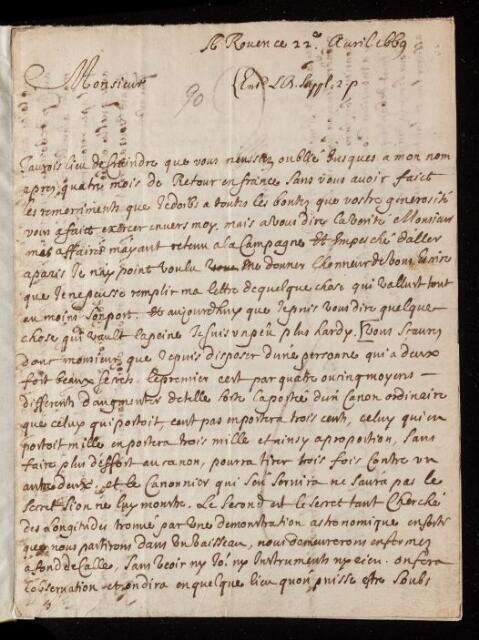 A Rouen ce 22e Avril 1669
Monsieur
90
(Entd LB. Suppl. 2. p
J'aurois lieu de Craindre que vous n'eussiez oublié jusques a mon nom
apres quatre mois de Retour en france sans vous avoir faict
les remerciments que Je doibs a toutes les bontez que vostre generosité
vous a faict exercer envers moy. mais a vous dire la verité Monsieur
mes affaires m'ayant retenu a la Campagne et Empesché d'aller
a paris Je n'ay point voulu me donner l'honneur de vous escrire
que Je ne peusse remplir ma lettre de quelque chose qui vallust tout
au moins son port. Et aujourdhuy que Je puis vous dire quelque
chose qui vault la peine Je suis un peu plus hardy. [Vous Scaurez
donc monsieur que Je puis disposer d'une personne qui a deux
fort beaux secrets. le premier cest par quatre ou cinq moyens
differents d'augmenter de telle sorte la portée d'un Canon ordinaire
que celuy qui portoit cent pas en portera trois cents, celuy qui en
portoit mille en portera trois mille et ainsy a proportion, sans
faire plus d'effort au canon, pourra tirer trois fois contre un
autre deux. et le Canonnier qui s'en servira ne saura pas le
secret si on ne luy monstre. Le Second est le secret tant Cherché
des Longitudes trouvé par une demonstration astronomique en sorte
que nous partirons dans un vaisseau, nous demeurerons enfermez
a fond de Calle, sans veoir ny ny Instruments ny rien. on fera
l'observation et on dira en quelque lieu qu'on puisse estre soubs